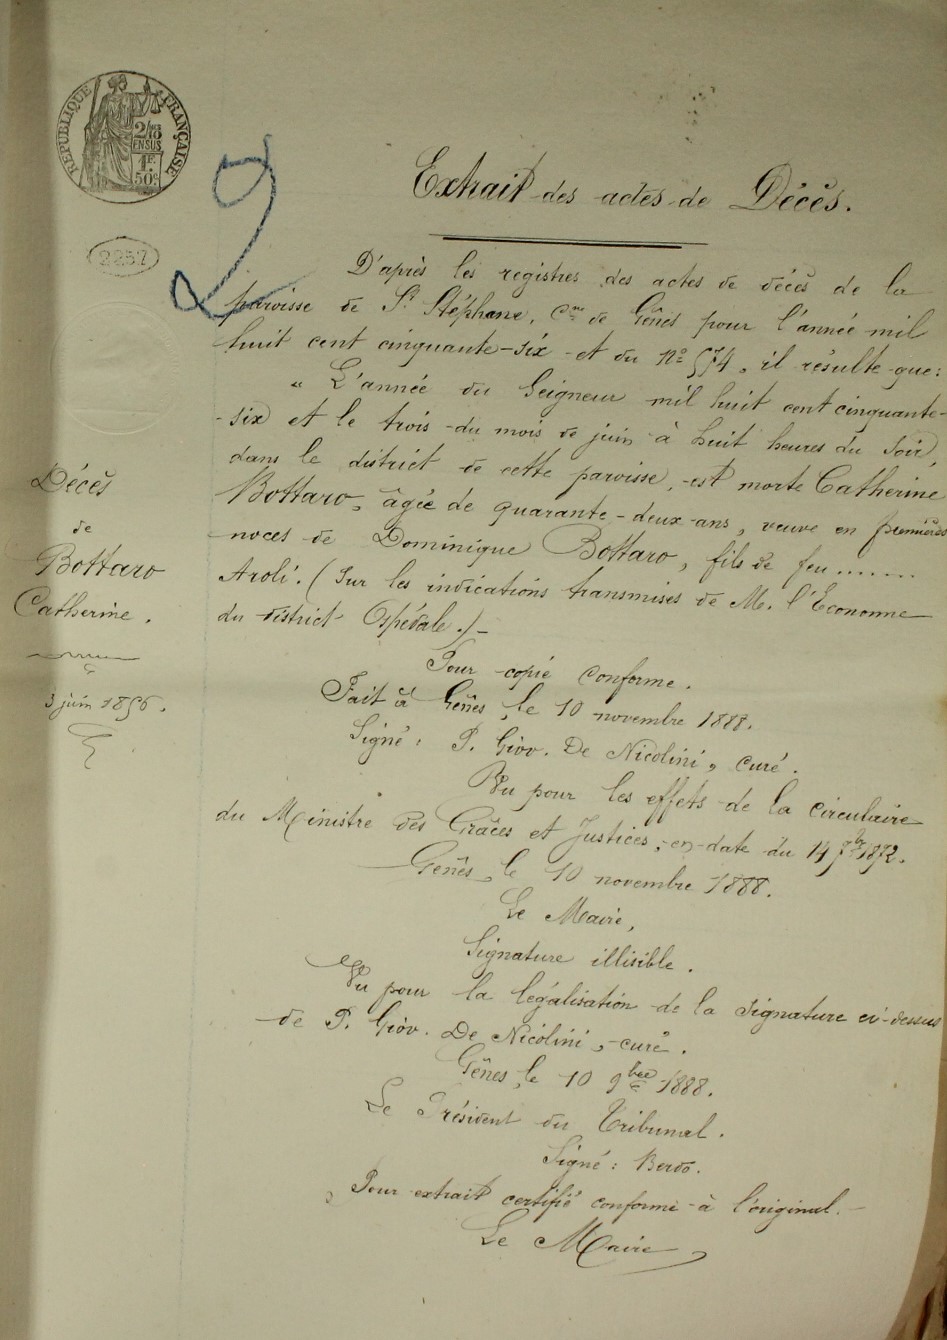 RÉPUBLIQUE FRANÇAISE
2/10
EN SUS
1F.
50c
2257
2
Extrait des actes de Décès.
D'après les registres des actes de décès de la
paroisse de St Stéphane, Cne de Gênes pour l'année mil
huit cent cinquante-six et du No 574, il résulte que:
" L'année du Seigneur mil huit cent cinquante-
-six et le trois du mois de juin à huit heures du soir,
dans le district de cette paroisse, est morte Catherine
Bottaro, âgée de quarante-deux ans, veuve en premières
noces de Dominique Bottaro, fils de feu .......
Aroli. (Sur les indications transmises de M. l'Econome
du district Ospédale.)-
Pour copie conforme.
Fait à Gênes, le 10 novembre 1888.
Signé: P. Giov. De Nicolini, curé.
Vu pour les effets de la circulaire
du Ministre des Grâces et Justices, en date du 14 7bre 1872.
Gênes, le 10 novembre 1888.
Le Maire,
Signature illisible.
Vu pour la légalisation de la signature ci-dessus
de P. Giov. De Nicolini, curé.
Gênes, le 10 9bre 1888.
Le Président du Tribunal.
Signé: Berdo.
Pour extrait certifié conforme à l'original.-
Le Maire,
Décès
de
Bottaro
Catherine.
3 juin 1856.